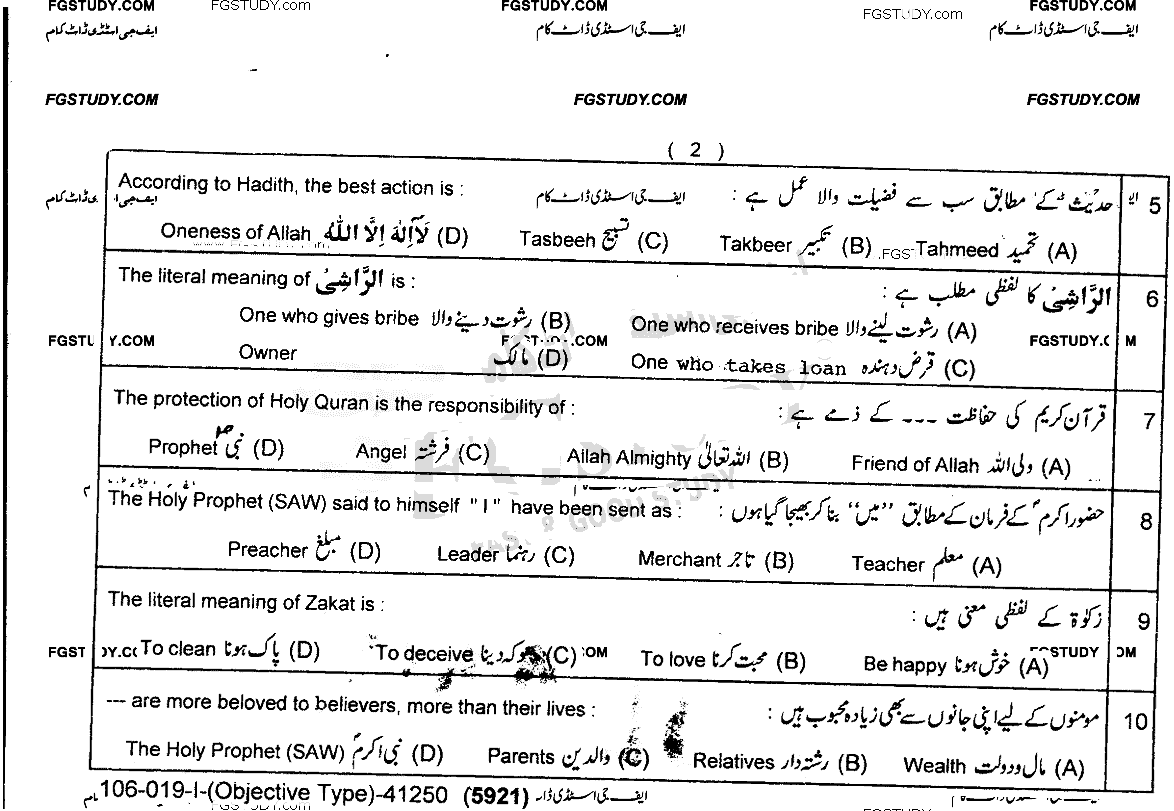 FGSTUDY.COM FGSTUDY.com FGSTUDY.COM FGSTUDY.com FGSTUDY.COM
ایف جی اسٹڈی ڈاٹ کام ایف جی اسٹڈی ڈاٹ کام ایف جی اسٹڈی ڈاٹ کام
FGSTUDY.COM FGSTUDY.COM FGSTUDY.COM
( 2 )
5 حدیث کے مطابق سب سے فضیلت والا عمل ہے : ایف جی اسٹڈی ڈاٹ کام According to Hadith, the best action is :
(A) تحمید Tahmeed (B) تکبیر Takbeer (C) تسبیح Tasbeeh (D) لَآ اِلٰهَ اِلَّا اللّٰهُ Oneness of Allah
6 اَلرَّاشِیُ کا لفظی مطلب ہے : The literal meaning of اَلرَّاشِیُ is :
(A) رشوت لینے والا One who receives bribe (B) رشوت دینے والا One who gives bribe
FGSTU Y.COM .COM FGSTUDY.C M
(C) قرض دہندہ One who takes loan (D) مالک Owner
7 قرآن کریم کی حفاظت --- کے ذمے ہے : The protection of Holy Quran is the responsibility of :
(A) ولی اللہ Friend of Allah (B) اللہ تعالیٰ Allah Almighty (C) فرشتہ Angel (D) نبیؐ Prophet
8 حضور اکرمؐ کے فرمان کے مطابق ”میں“ بنا کر بھیجا گیا ہوں : The Holy Prophet (SAW) said to himself "I" have been sent as :
(A) معلم Teacher (B) تاجر Merchant (C) رہنما Leader (D) مبلغ Preacher
9 زکوٰۃ کے لفظی معنی ہیں : The literal meaning of Zakat is :
(A) خوش ہونا Be happy (B) محبت کرنا To love (C) دھوکہ دینا To deceive (D) پاک ہونا To clean
10 مومنوں کے لیے اپنی جانوں سے بھی زیادہ محبوب ہیں : --- are more beloved to believers, more than their lives :
(A) مال و دولت Wealth (B) رشتہ دار Relatives (C) والدین Parents (D) نبی اکرمؐ The Holy Prophet (SAW)
106-019-I-(Objective Type)-41250 (5921) ایف جی اسٹڈی ڈاٹ